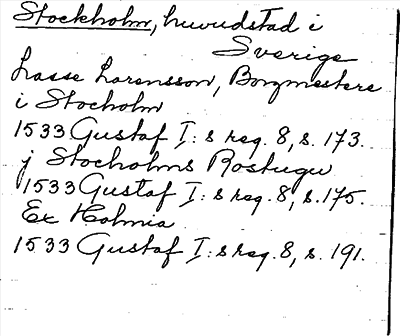 Stockholm, huvudstad i
Sverige
Lasse Larensson, Borgmestere
i Stocholm
1533 Gustaf I:s reg. 8, s. 173.
j Stocholms Rostugu
1533 Gustaf I:s reg. 8, s. 175.
Ex Holmia
1533 Gustaf I:s reg. 8, s. 191.